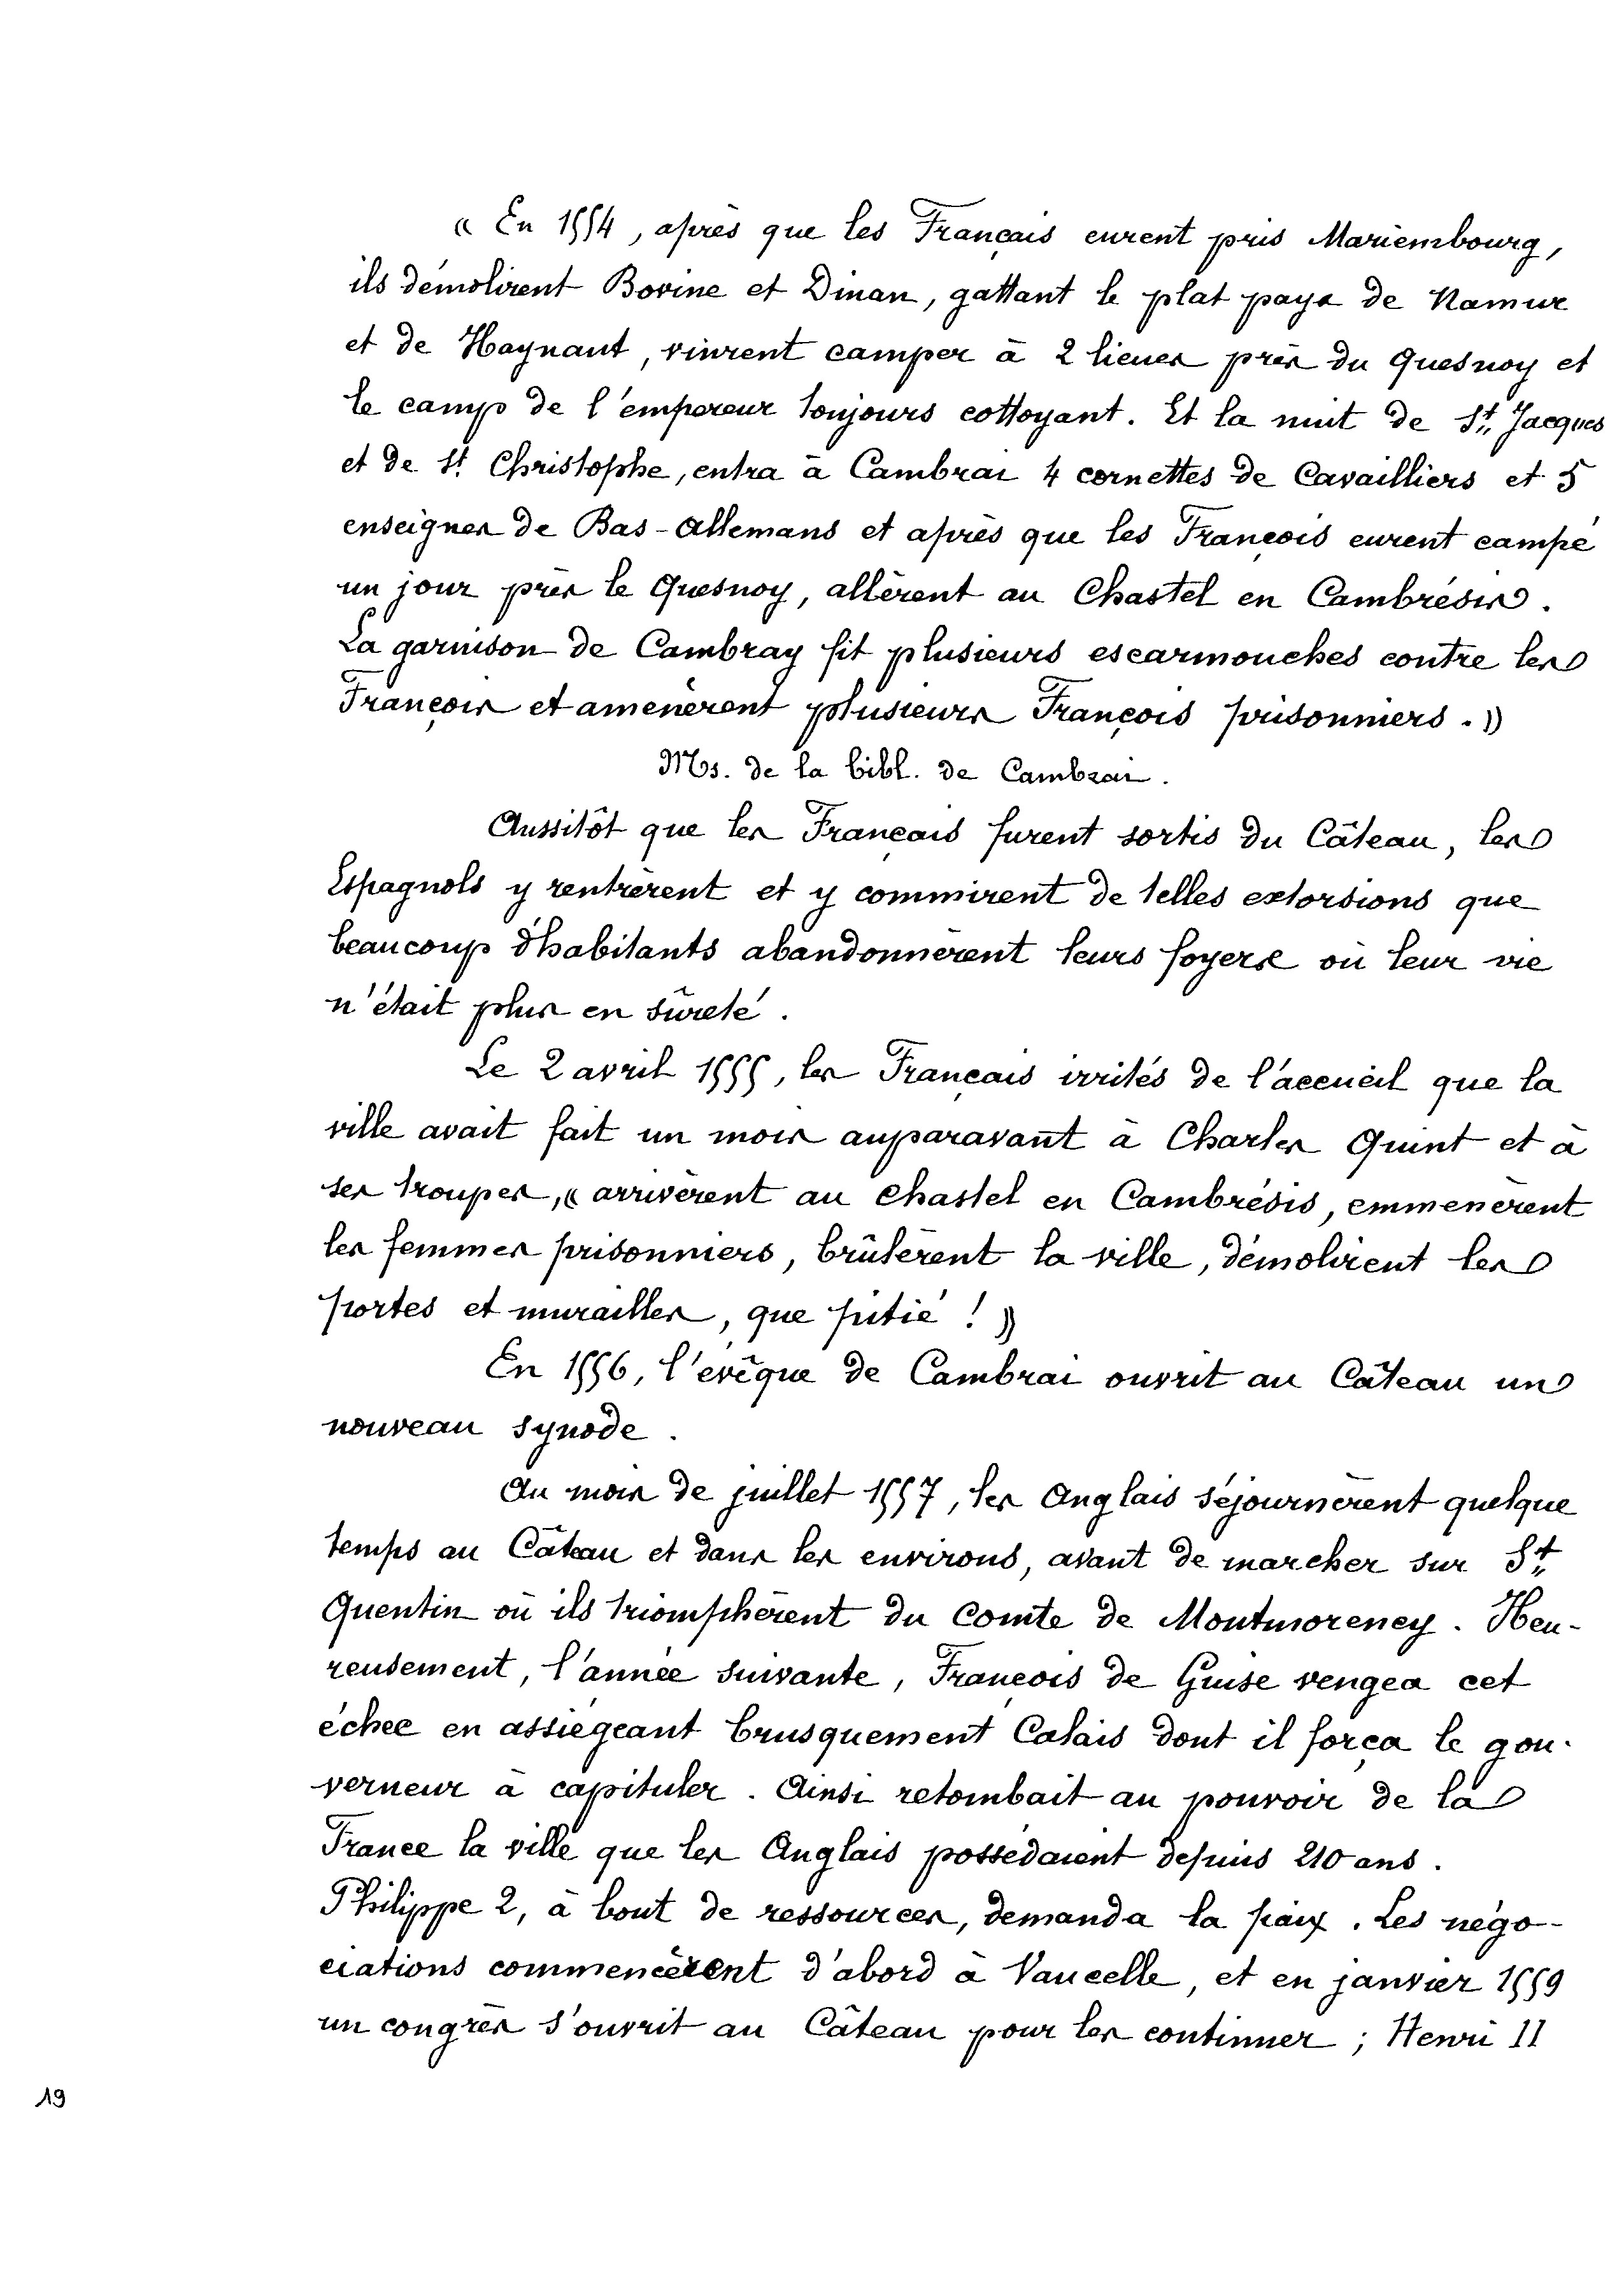 « En 1554, après que les Français eurent pris Mariembourg,
ils démolirent Bovine et Dinan, gattant le plat pays de Namur
et de Haynaut, vinrent camper à 2 lieues près du Quesnoy et
le camp de l'empereur toujours cottoyant. Et la nuit de St. Jacques
et de St. Christophe, entra à Cambrai 4 cornettes de Cavailliers et 5
enseignes de Bas-Allemans et après que les François eurent campé
un jour près le Quesnoy, allèrent au Chastel en Cambrésis.
La garnison de Cambray fit plusieurs escarmouches contre les
François et amenèrent plusieurs François prisonniers. »
Ms. de la bibl. de Cambrai.
Aussitôt que les Français furent sortis du Câteau, les
Espagnols y rentrèrent et y commirent de telles extorsions que
beaucoup d'habitants abandonnèrent leurs foyers où leur vie
n'était plus en sûreté.
Le 2 avril 1555, les Français irrités de l'accueil que la
ville avait fait un mois auparavant à Charles Quint et à
ses troupes, « arrivèrent au Chastel en Cambrésis, emmenèrent
les femmes prisonniers, brûlèrent la ville, démolirent les
portes et murailles, que pitié ! »
En 1556, l'évêque de Cambrai ouvrit au Câteau un
nouveau synode.
Au mois de juillet 1557, les Anglais séjournèrent quelque
temps au Câteau et dans les environs, avant de marcher sur St.
Quentin où ils triomphèrent du Comte de Montmorency. Heu-
reusement, l'année suivante, François de Guise vengea cet
échec en assiégeant brusquement Calais dont il força le gou-
verneur à capituler. Ainsi retombait au pouvoir de la
France la ville que les Anglais possédaient depuis 210 ans.
Philippe 2, à bout de ressources, demanda la paix. Les négo-
ciations commencèrent d'abord à Vaucelle, et en janvier 1559
un congrès s'ouvrit au Câteau pour les continuer ; Henri II
19